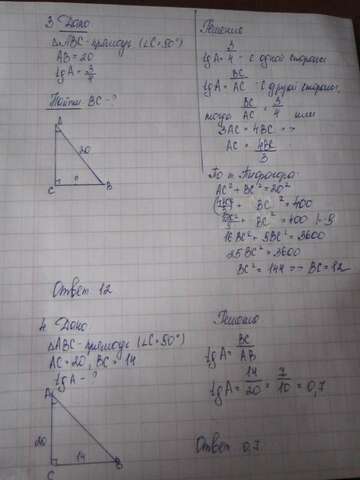 3 Дано
△ABC - прямоуг (∠C=90°)
AB=20
tgA = 3/4
Найти BC-?
A
20
?
C
B
Ответ 12
Решение
tgA = 3/4 - с одной стороны
tgA = BC/AC - с другой стороны,
тогда BC/AC = 3/4 или
3AC = 4BC =>
AC = 4BC/3
По т. Пифагора:
AC² + BC² = 20²
(4BC/3)² + BC² = 400
16BC²/9 + BC² = 400 |·9
16BC² + 9BC² = 3600
25BC² = 3600
BC² = 144 => BC = 12
4 Дано
△ABC - прямоуг (∠C=90°)
AC = 20, BC = 14
tgA - ?
A
20
14
C
B
Решение
tgA = BC/AB
tgA = 14/20 = 7/10 = 0,7
Ответ 0,7